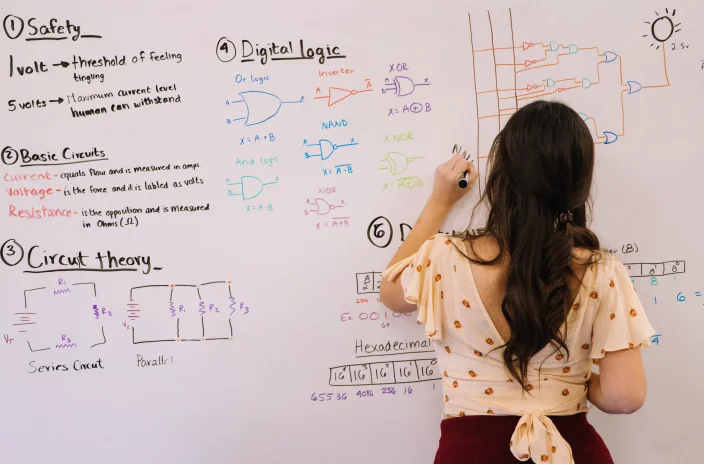 ① Safety
1 volt → threshold of feeling
tingling
5 volts → Maximum current level
human can withstand
② Basic Circuits
Current - equals flow and is measured in amps.
Voltage - is the force and it is labled as volts
Resistance - is the opposition and is measured
in Ohms (Ω)
③ Circut theory
R1
R2
R3
VT
Series Circut
R1
R2
R3
Parallel
④ Digital logic
Or logic
A
B
X
X = A + B
And logic
A
B
X = A·B
Inverter
A
A̅
NAND
A
B
X
X = A̅·̅B̅
NOR
A
B
X
X = A̅+̅B̅
XOR
A
B
X
X = A ⊕ B
XNOR
25v
Ex. 0010
64
Hexadecimal
16⁴ 16³ 16² 16 16⁰
65536 4096 256 16 1
(8)
8¹ 8⁰
8 1
1 6 =